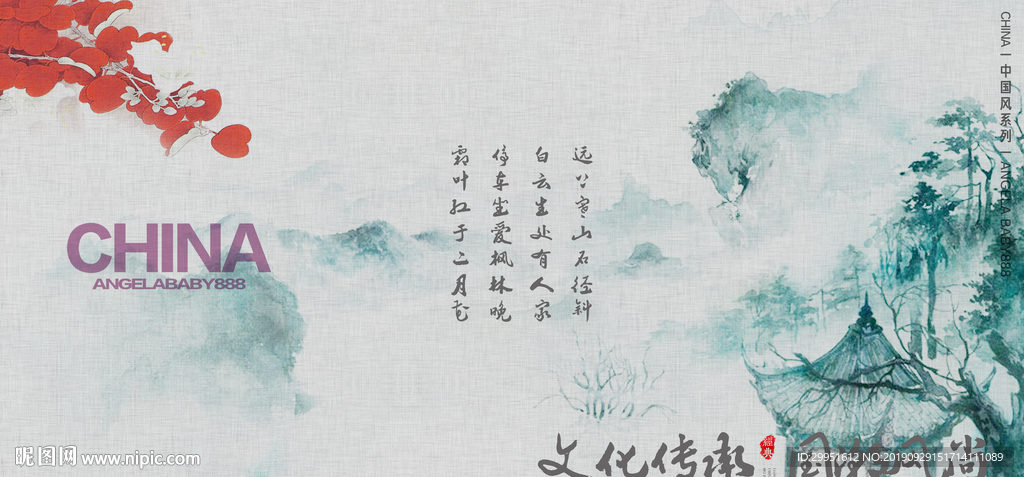 CHINA
ANGELABABY888
远上寒山石径斜
白云生处有人家
停车坐爱枫林晚
霜叶红于二月花
CHINA | 中国风系列 | ANGELA BABY888
文化传承
經典
昵图网 www.nipic.com
ID:29951612 NO:20190929151714111089